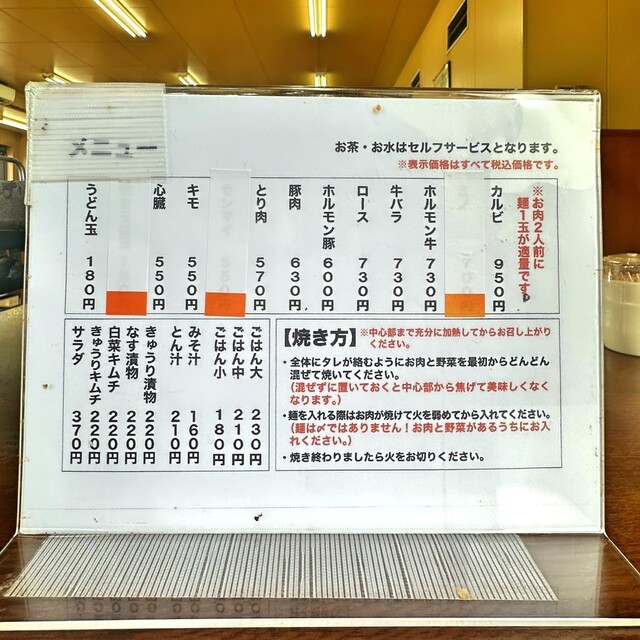 メニュー
お茶・お水はセルフサービスとなります。
※表示価格はすべて税込価格です。
※お肉2人前に
麺1玉が適量です。
カルビ 950円
ホルモン牛 730円
牛バラ 730円
ロース 730円
ホルモン豚 600円
豚肉 630円
とり肉 570円
キモ 550円
心臓 550円
うどん玉 180円
ごはん大 230円
ごはん中 210円
ごはん小 180円
みそ汁 160円
とん汁 210円
きゅうり漬物 220円
なす漬物 220円
白菜キムチ 220円
きゅうりキムチ 220円
サラダ 370円
【焼き方】※中心部まで充分に加熱してからお召し上がり
ください。
・全体にタレが絡むようにお肉と野菜を最初からどんどん
混ぜて焼いてください。
(混ぜずに置いておくと中心部から焦げて美味しくなく
なります。)
・麺を入れる際はお肉が焼けて火を弱めてから入れてください。
(麺は〆ではありません！お肉と野菜があるうちにお入
れください。)
・焼き終わりましたら火をお切りください。